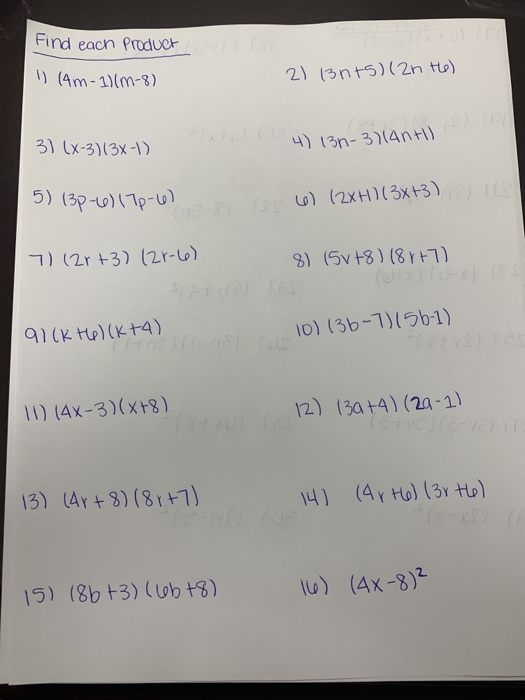 Find each Product
1) (4m-1)(m-8)
2) (3n+5)(2n+6)
3) (x-3)(3x-1)
4) (3n-3)(4n+1)
5) (3p-6)(7p-6)
6) (2x+1)(3x+3)
7) (2r+3) (2r-6)
8) (5v+8)(8r+7)
9) (k+6)(k+4)
10) (3b-7)(5b-1)
11) (4x-3)(x+8)
12) (3a+4)(2a-1)
13) (4r+8)(8r+7)
14) (4r+6)(3r+6)
15) (8b+3)(6b+8)
16) (4x-8)²